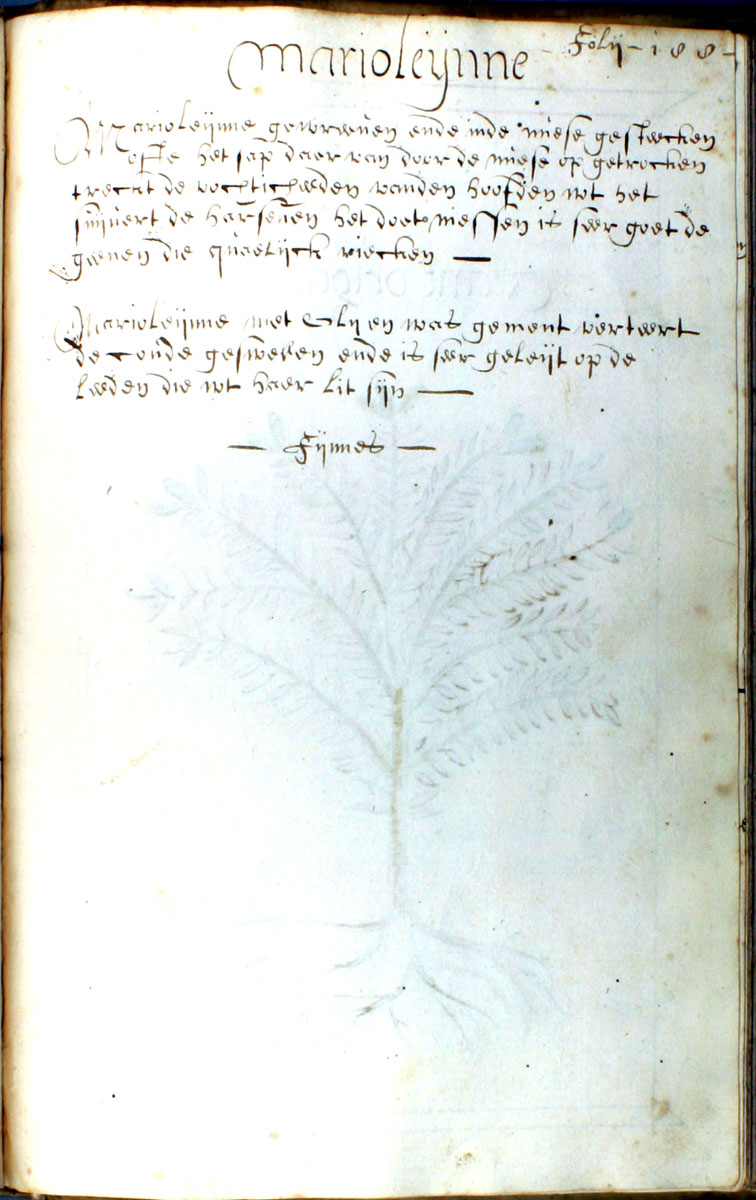 Folÿ - 188 -
Marioleÿnne
Marioleÿnne gewreven ende inde niese gesteecken
ofte het sap daer van door de niese op getrocken
treckt de vochticheden vanden hoofden wt het
suijvert de harsenen het doet niessen is seer goet de
geenen die qualijck riecken —
Marioleÿnne met Olij en was gement verteert
de coude geswellen ende is seer geleijt op de
leeden die wt haer lit sijn —
— Fÿnnes —